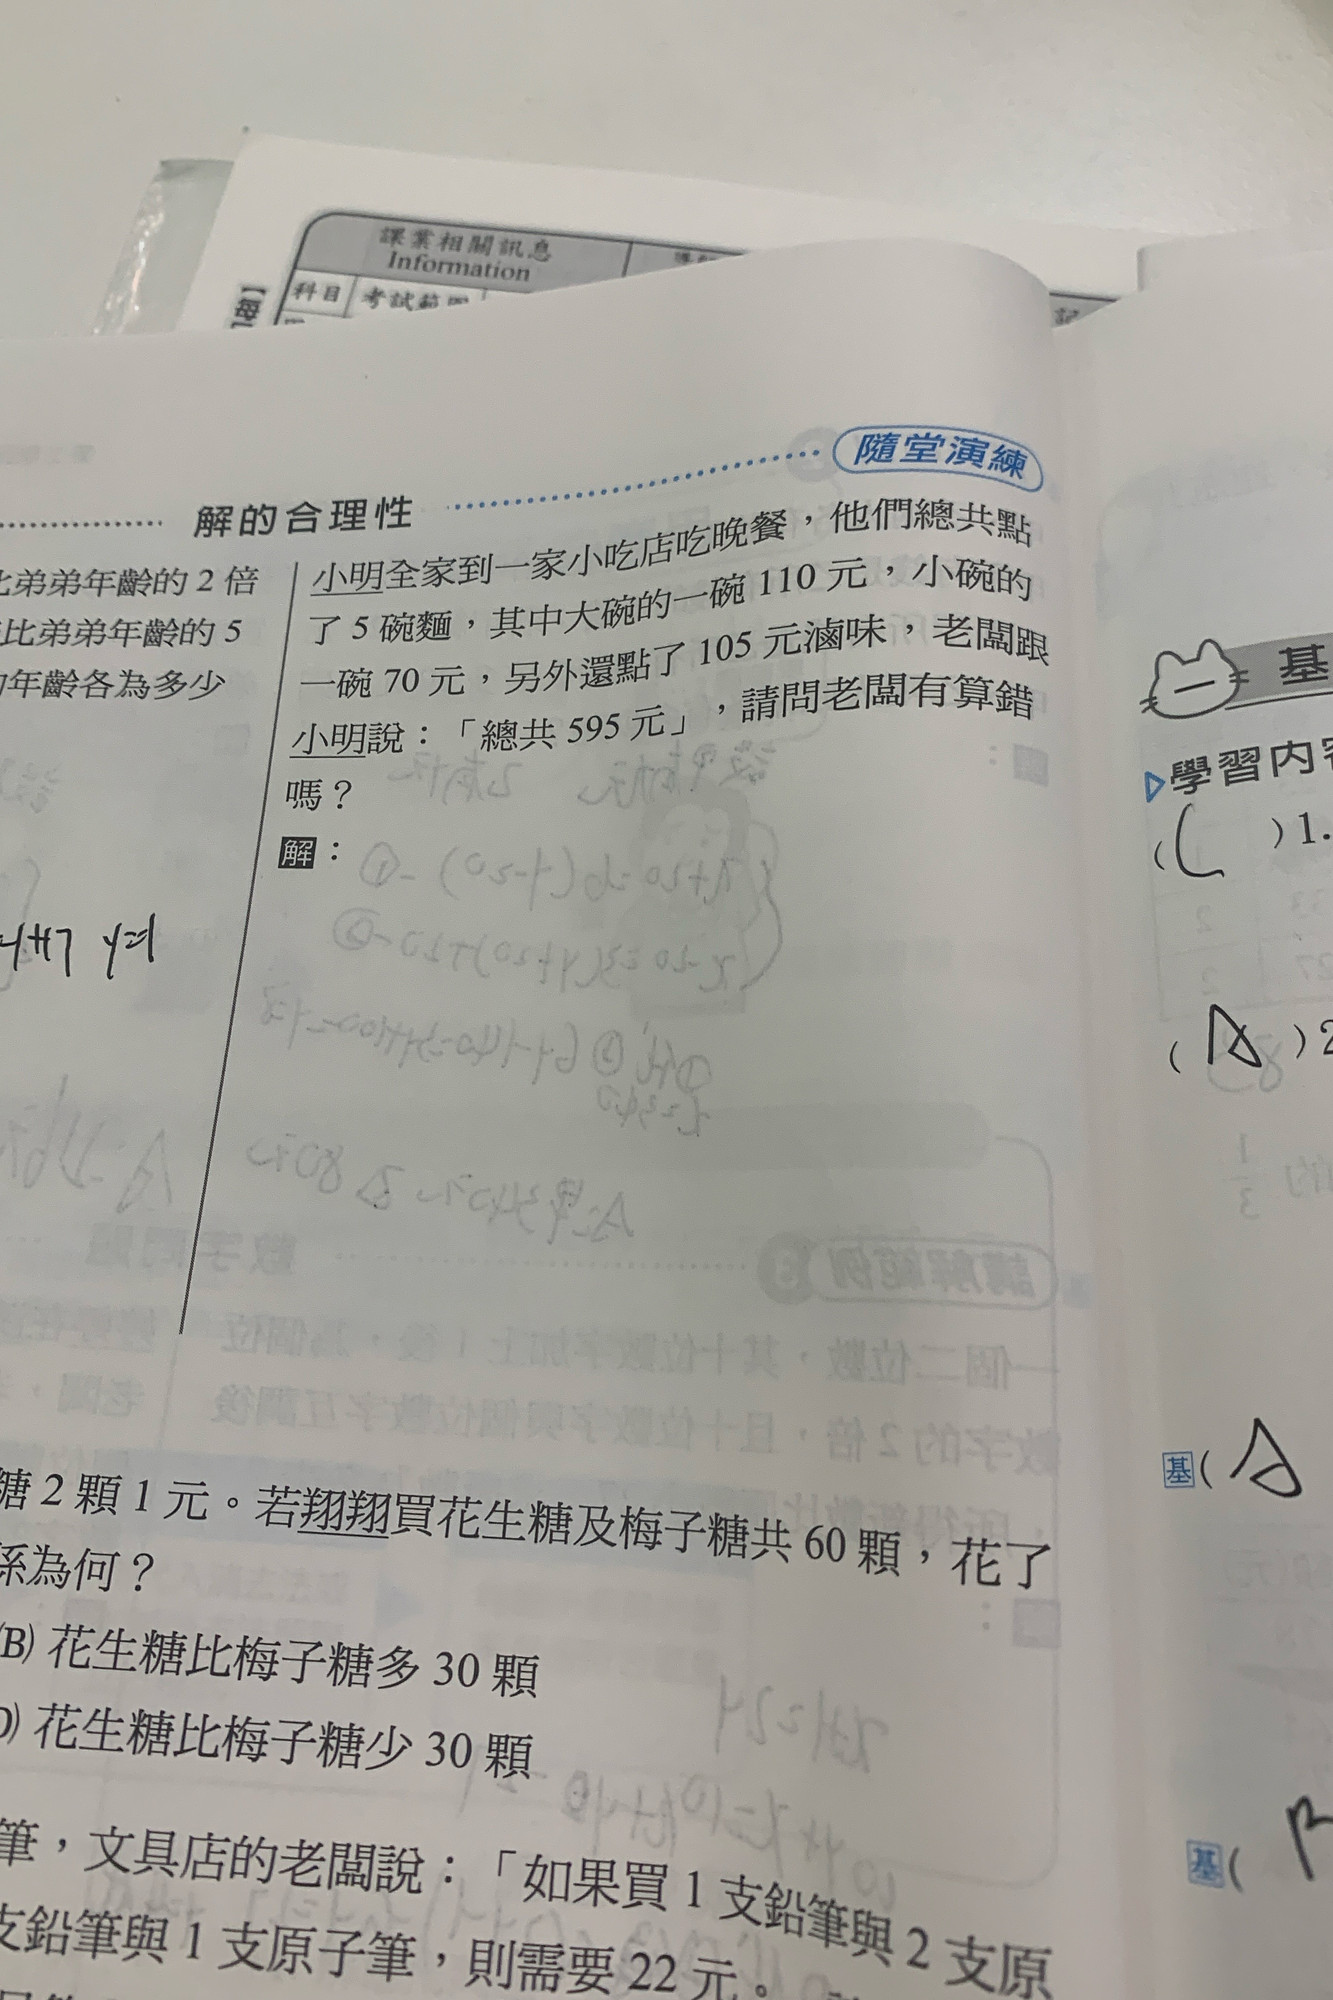 課業相關訊息
Information
科目 考試範
【每
記
隨堂演練
解的合理性
比弟弟年齡的 2 倍
比弟弟年齡的 5
的年齡各為多少
小明全家到一家小吃店吃晚餐，他們總共點
了 5 碗麵，其中大碗的一碗 110 元，小碗的
一碗 70 元，另外還點了 105 元滷味，老闆跟
小明說：「總共 595 元」，請問老闆有算錯
嗎？
解：
y=1
糖 2 顆 1 元。若翔翔買花生糖及梅子糖共 60 顆，花了
係為何？
(B) 花生糖比梅子糖多 30 顆
D) 花生糖比梅子糖少 30 顆
筆，文具店的老闆說：「如果買 1 支鉛筆與 2 支原
支鉛筆與 1 支原子筆，則需要 22 元。
一 基
▷學習內容
( C ) 1.
( A ) 2
基 ( A
基 (